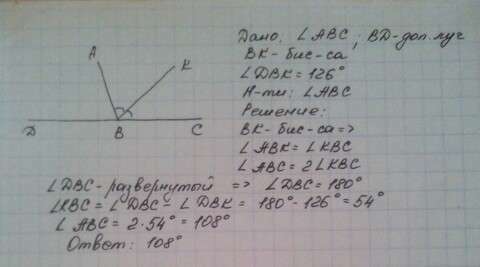 A
K
D
B
C
Дано: ∠ABC; BD-доп. луч
BK-бис-са
∠DBK=126°
Н-ти: ∠ABC
Решение:
BK-бис-са=>
∠ABK=∠KBC
∠ABC=2∠KBC
∠DBC-развернутый => ∠DBC=180°
∠KBC=∠DBC-∠DBK=180°-126°=54°
∠ABC=2·54°=108°
Ответ: 108°